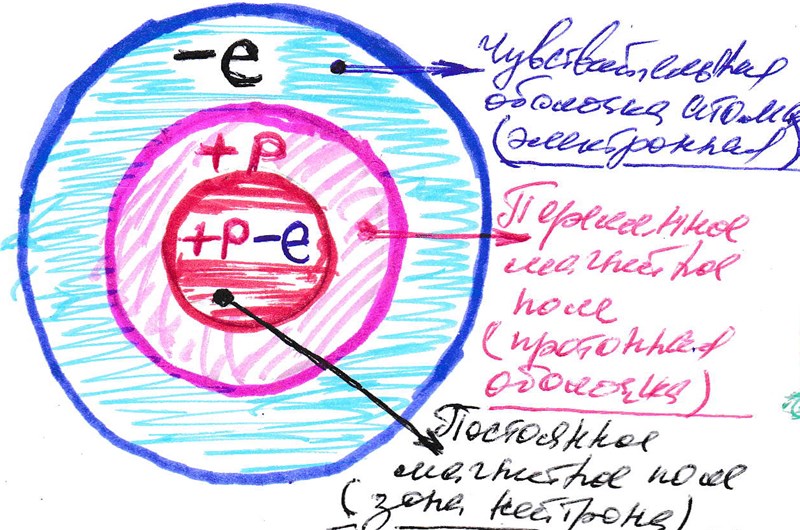 -e
+p
+p-e
Чувствительная
оболочка атома
(электронная)
Переменное
магнитное
поле
(протонная
оболочка)
Постоянное
магнитное поле
(зона нейтрона)